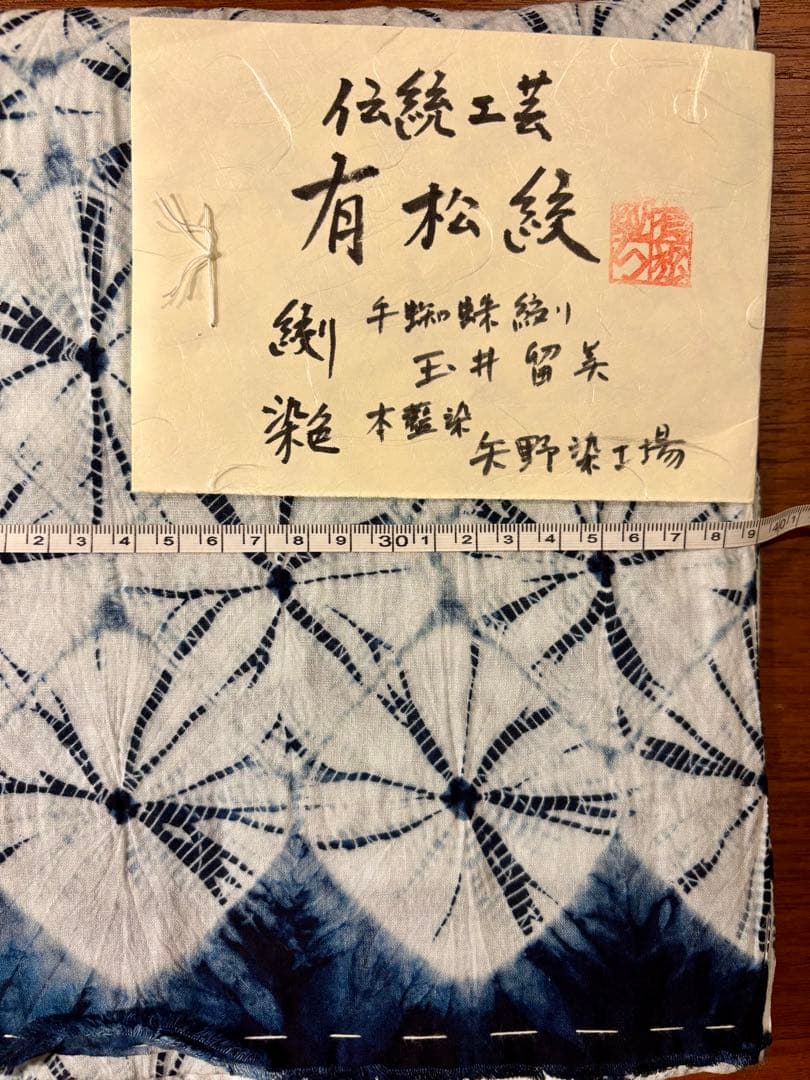 伝統工芸
有松絞
絞り 手蜘蛛絞り
玉井留美
染色 本藍染
矢野染工場
2 3 4 5 6 7 8 9 30 1 2 3 4 5 6 7 8 9 40 1